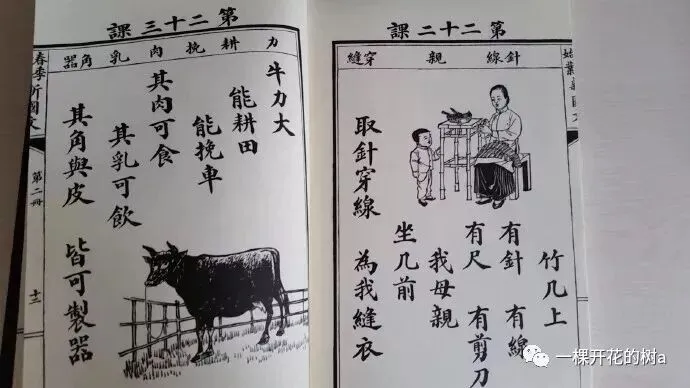 第二十二課
針線 親 穿縫
竹几上
有針 有線
有尺 有剪刀
我母親
坐几前
取針穿線 為我縫衣
第二十三課
力 耕 挽 肉 乳 角器
牛力大
能耕田
能挽車
其肉可食
其乳可飲
其角與皮 皆可製器
第二冊
一棵开花的树a